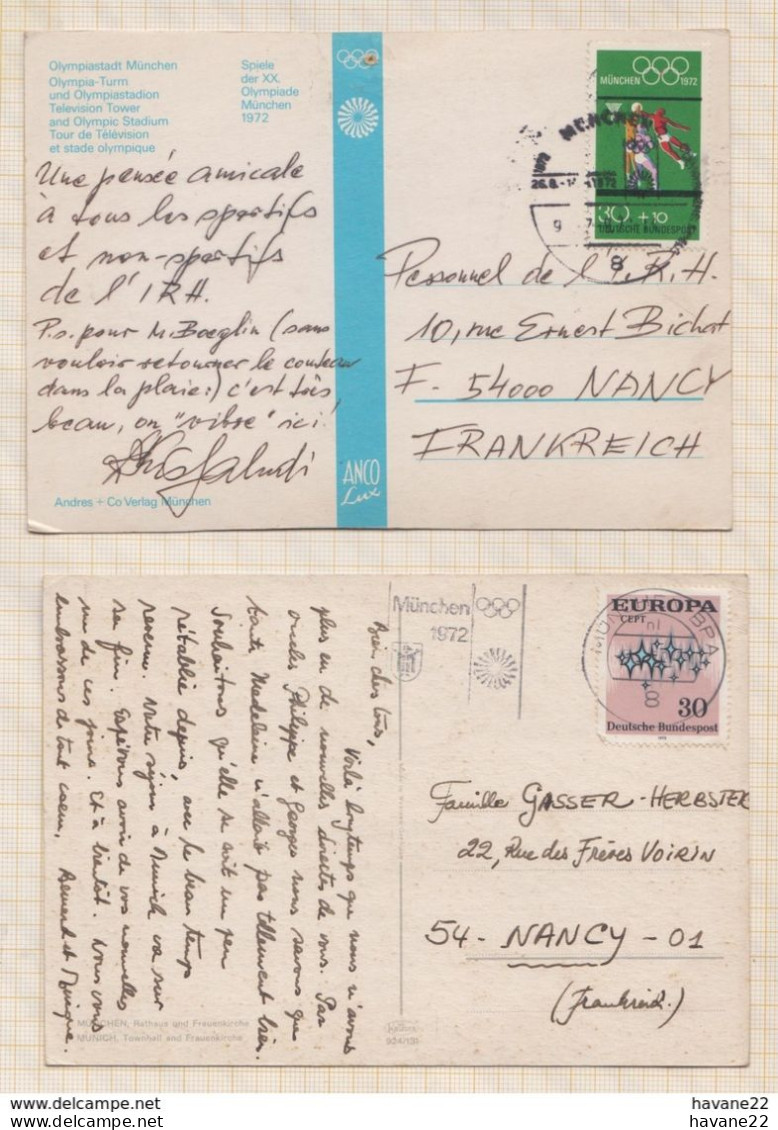 Olympiastadt München
Olympia-Turm
und Olympiastadion
Television Tower
and Olympic Stadium
Tour de Télévision
et stade olympique
Spiele
der XX.
Olympiade
München
1972
Une pensée amicale
à tous les sportifs
et non-sportifs
de l'IRH.
P.s. pour M. Boeglin (sans
vouloir retourner le couteau
dans la plaie:) c'est très
beau, on "vibre" ici!
Andres + Co Verlag München
ANCO
Lux
MÜNCHEN 1972
30 + 10
DEUTSCHE BUNDESPOST
MÜNCHEN
1972
8
Personnel de l'I.R.H.
10, rue Ernest Bichat
F- 54000 NANCY
FRANKREICH
München
1972
EUROPA
CEPT
30
Deutsche Bundespost
MÜNCHEN BPA
nl
8
Voilà longtemps que nous n'avons
plus eu de nouvelles directes de vous. Par
oncles Philippe et Georges nous savons que
tante Madeleine n'allait pas tellement bien.
Souhaitons qu'elle se soit un peu
rétablie depuis, avec le beau temps
revenu. Notre séjour à Munich va sur
sa fin. Espérons avoir de vos nouvelles
un de ces jours. Et à bientôt. Nous vous
embrassons de tout coeur,
MÜNCHEN, Rathaus und Frauenkirche
MUNICH, Townhall and Frauenkirche
924/131
Famille GASSER-HERBSTER
22, Rue des Frères VOIRIN
54- NANCY-01
(Frankreich.)
havane22
havane22